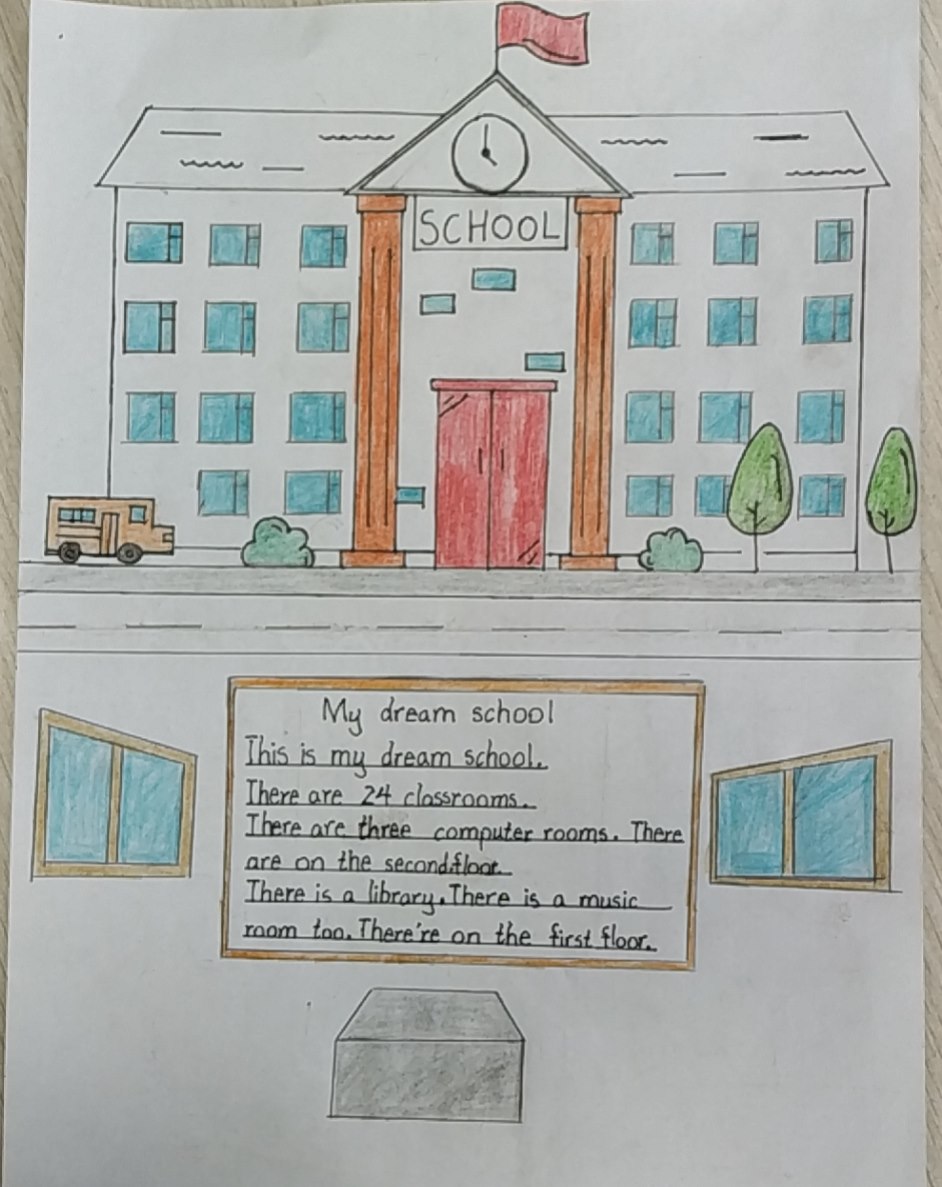 SCHOOL
My dream school
This is my dream school.
There are 24 classrooms.
There are three computer rooms. There
are on the second floor.
There is a library. There is a music
room too. There're on the first floor.